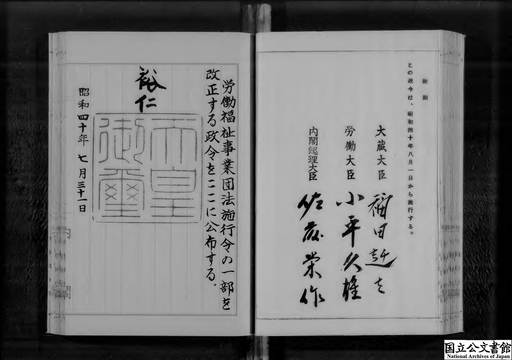 附則
この政令は、昭和四十年八月一日から施行する。
大蔵大臣 福田赳夫
労働大臣 小平久雄
内閣総理大臣 佐藤栄作
労働福祉事業団法施行令の一部を
改正する政令をここに公布する。
裕仁
天皇
御璽
昭和四十年七月三十一日
国立公文書館
National Archives of Japan